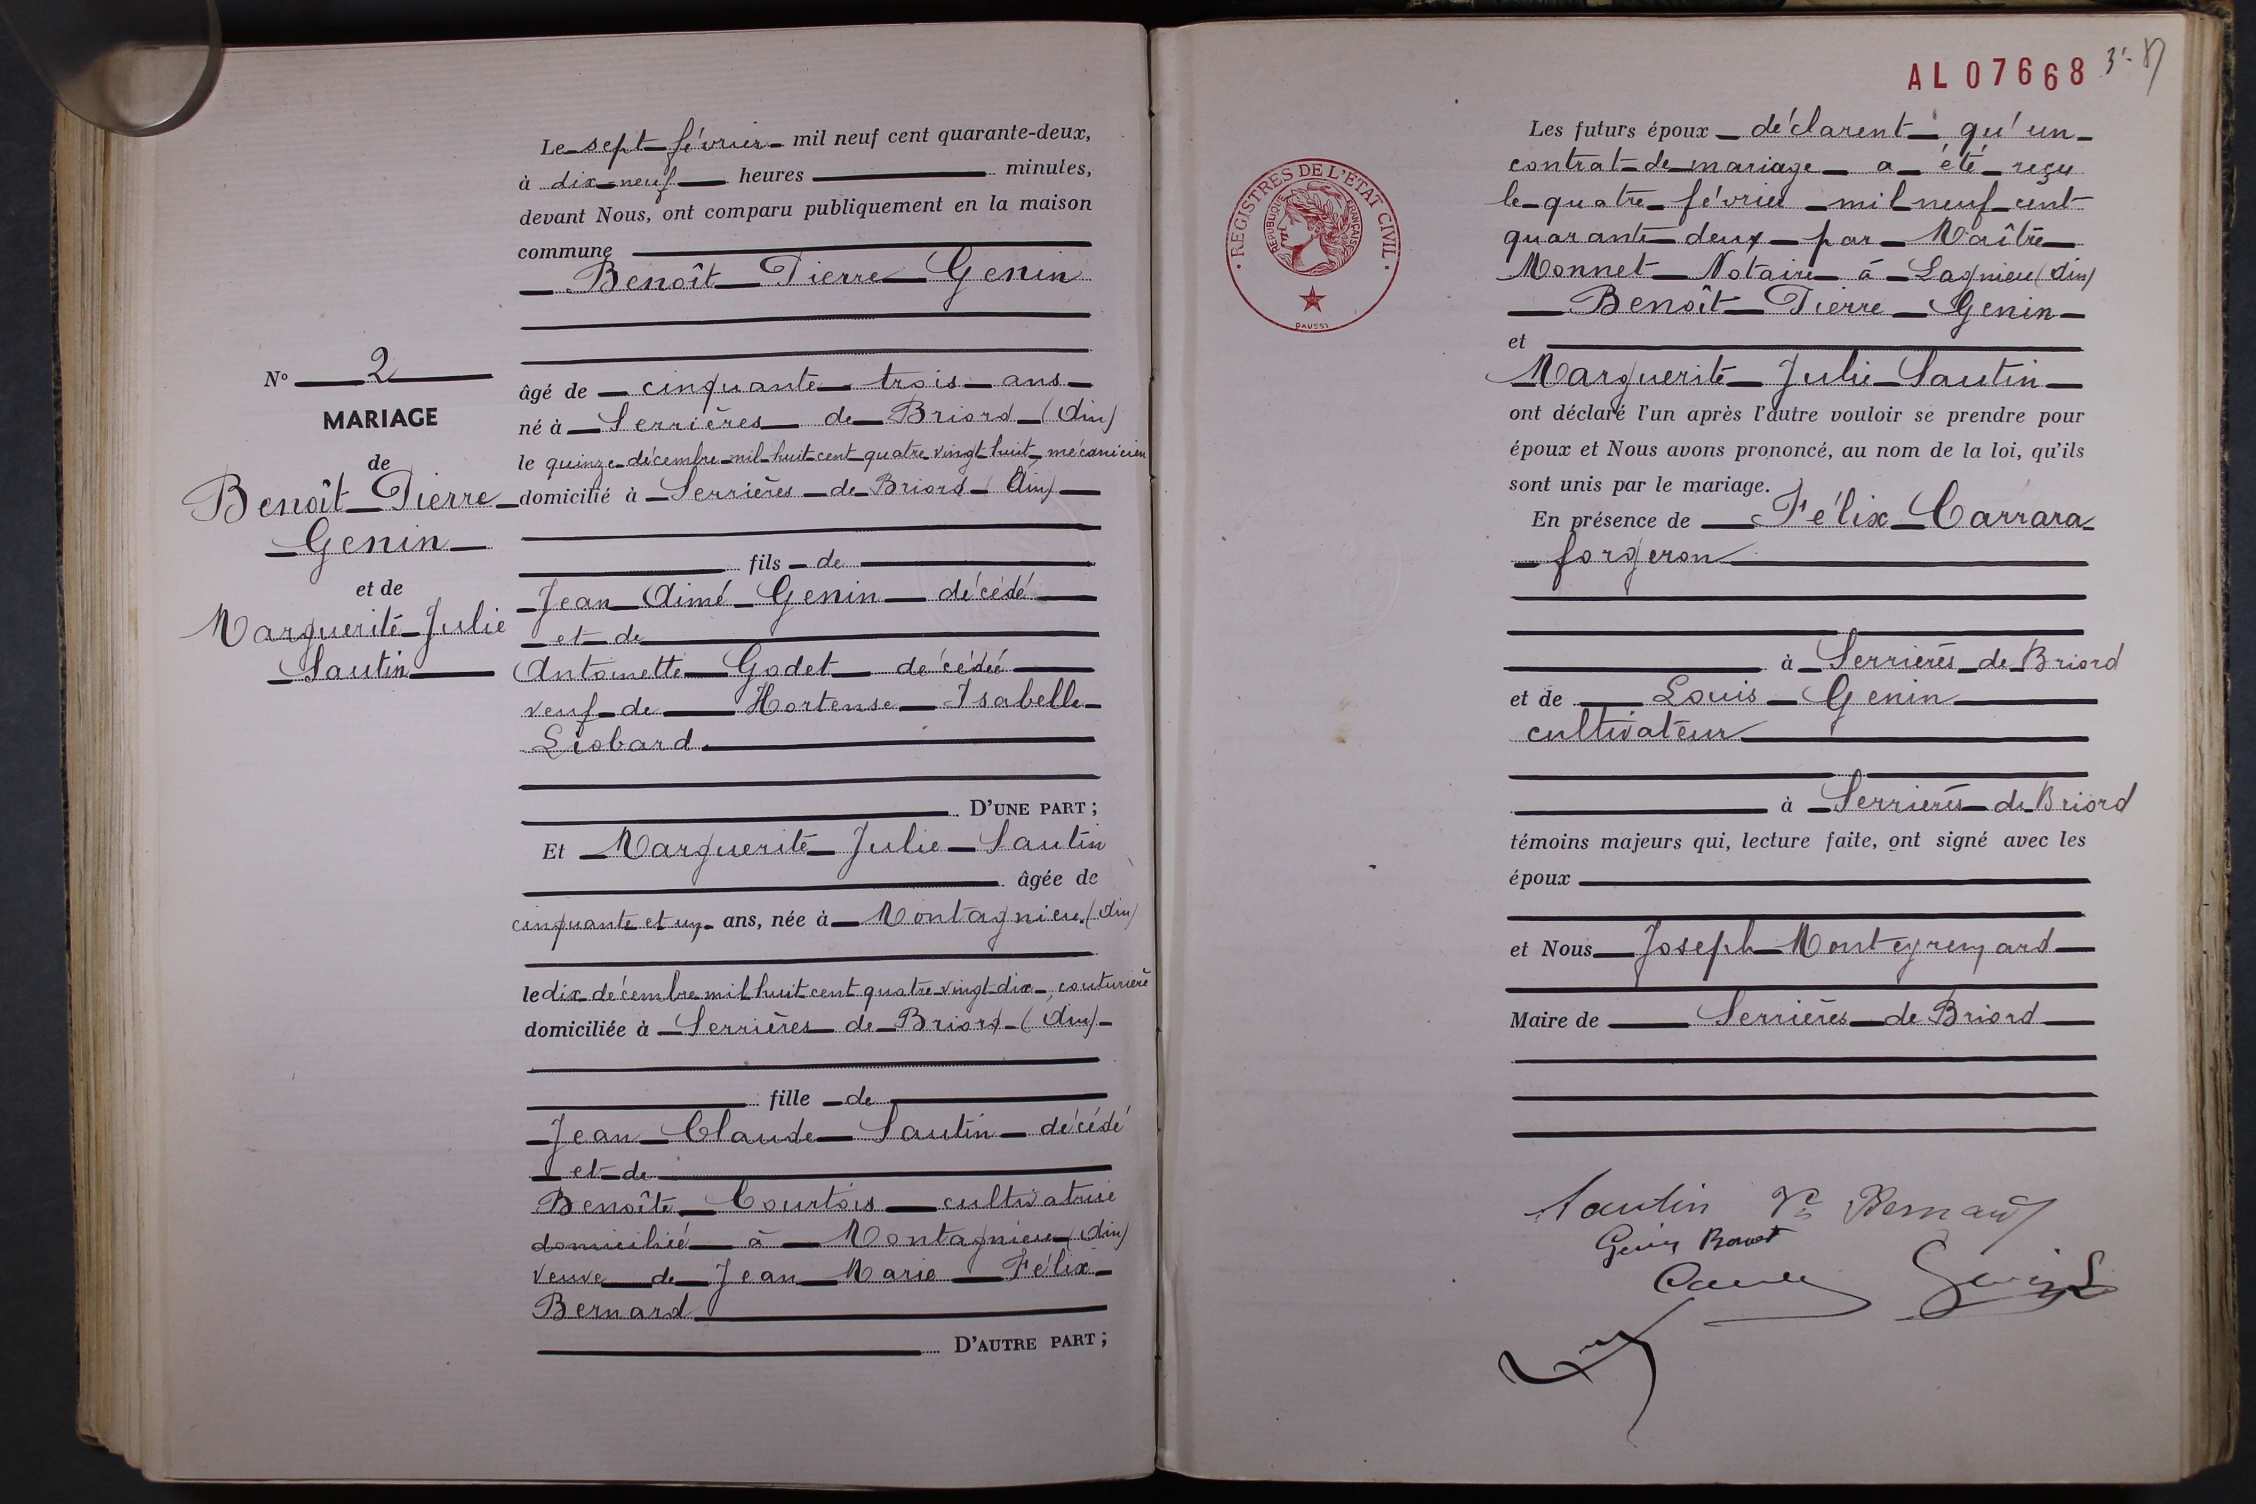 Le sept février mil neuf cent quarante-deux,
à dix-neuf heures minutes,
devant Nous, ont comparu publiquement en la maison
commune
Benoît Pierre Genin
âgé de cinquante trois ans
né à Serrières de Briord (Ain)
le quinze décembre mil huit cent quatre vingt huit mécanicien
domicilié à Serrières de Briord (Ain)
fils de
Jean Aimé Genin décédé
et de
Antoinette Godet décédée
veuf de Hortense Isabelle
Liobard
D'UNE PART ;
Et Marguerite Julie Sautin
âgée de
cinquante et un ans, née à Montagnieu (Ain)
le dix décembre mil huit cent quatre vingt dix, couturière
domiciliée à Serrières de Briord (Ain)
fille de
Jean Claude Sautin décédé
et de
Benoîte Courtois cultivatrice
domiciliée à Montagnieu (Ain)
veuve de Jean Marie Félix
Bernard
D'AUTRE PART ;
N° 2
MARIAGE
de
Benoît Pierre
Genin
et de
Marguerite Julie
Sautin
AL07668
REGISTRES DE L'ÉTAT CIVIL
REPUBLIQUE FRANÇAISE
DAUSSY
Les futurs époux déclarent qu'un
contrat de mariage a été reçu
le quatre février mil neuf cent
quarante deux par Maître
Monnet Notaire à Lagnieu (Ain)
Benoît Pierre Genin
et
Marguerite Julie Sautin
ont déclaré l'un après l'autre vouloir se prendre pour
époux et Nous avons prononcé, au nom de la loi, qu'ils
sont unis par le mariage.
En présence de Félix Carrara
forgeron
à Serrières de Briord
et de Louis Genin
cultivateur
à Serrières de Briord
témoins majeurs qui, lecture faite, ont signé avec les
époux
et Nous Joseph Monteyremard
Maire de Serrières de Briord
Sautin Ve Bernard
Genin Benoit
Genin L